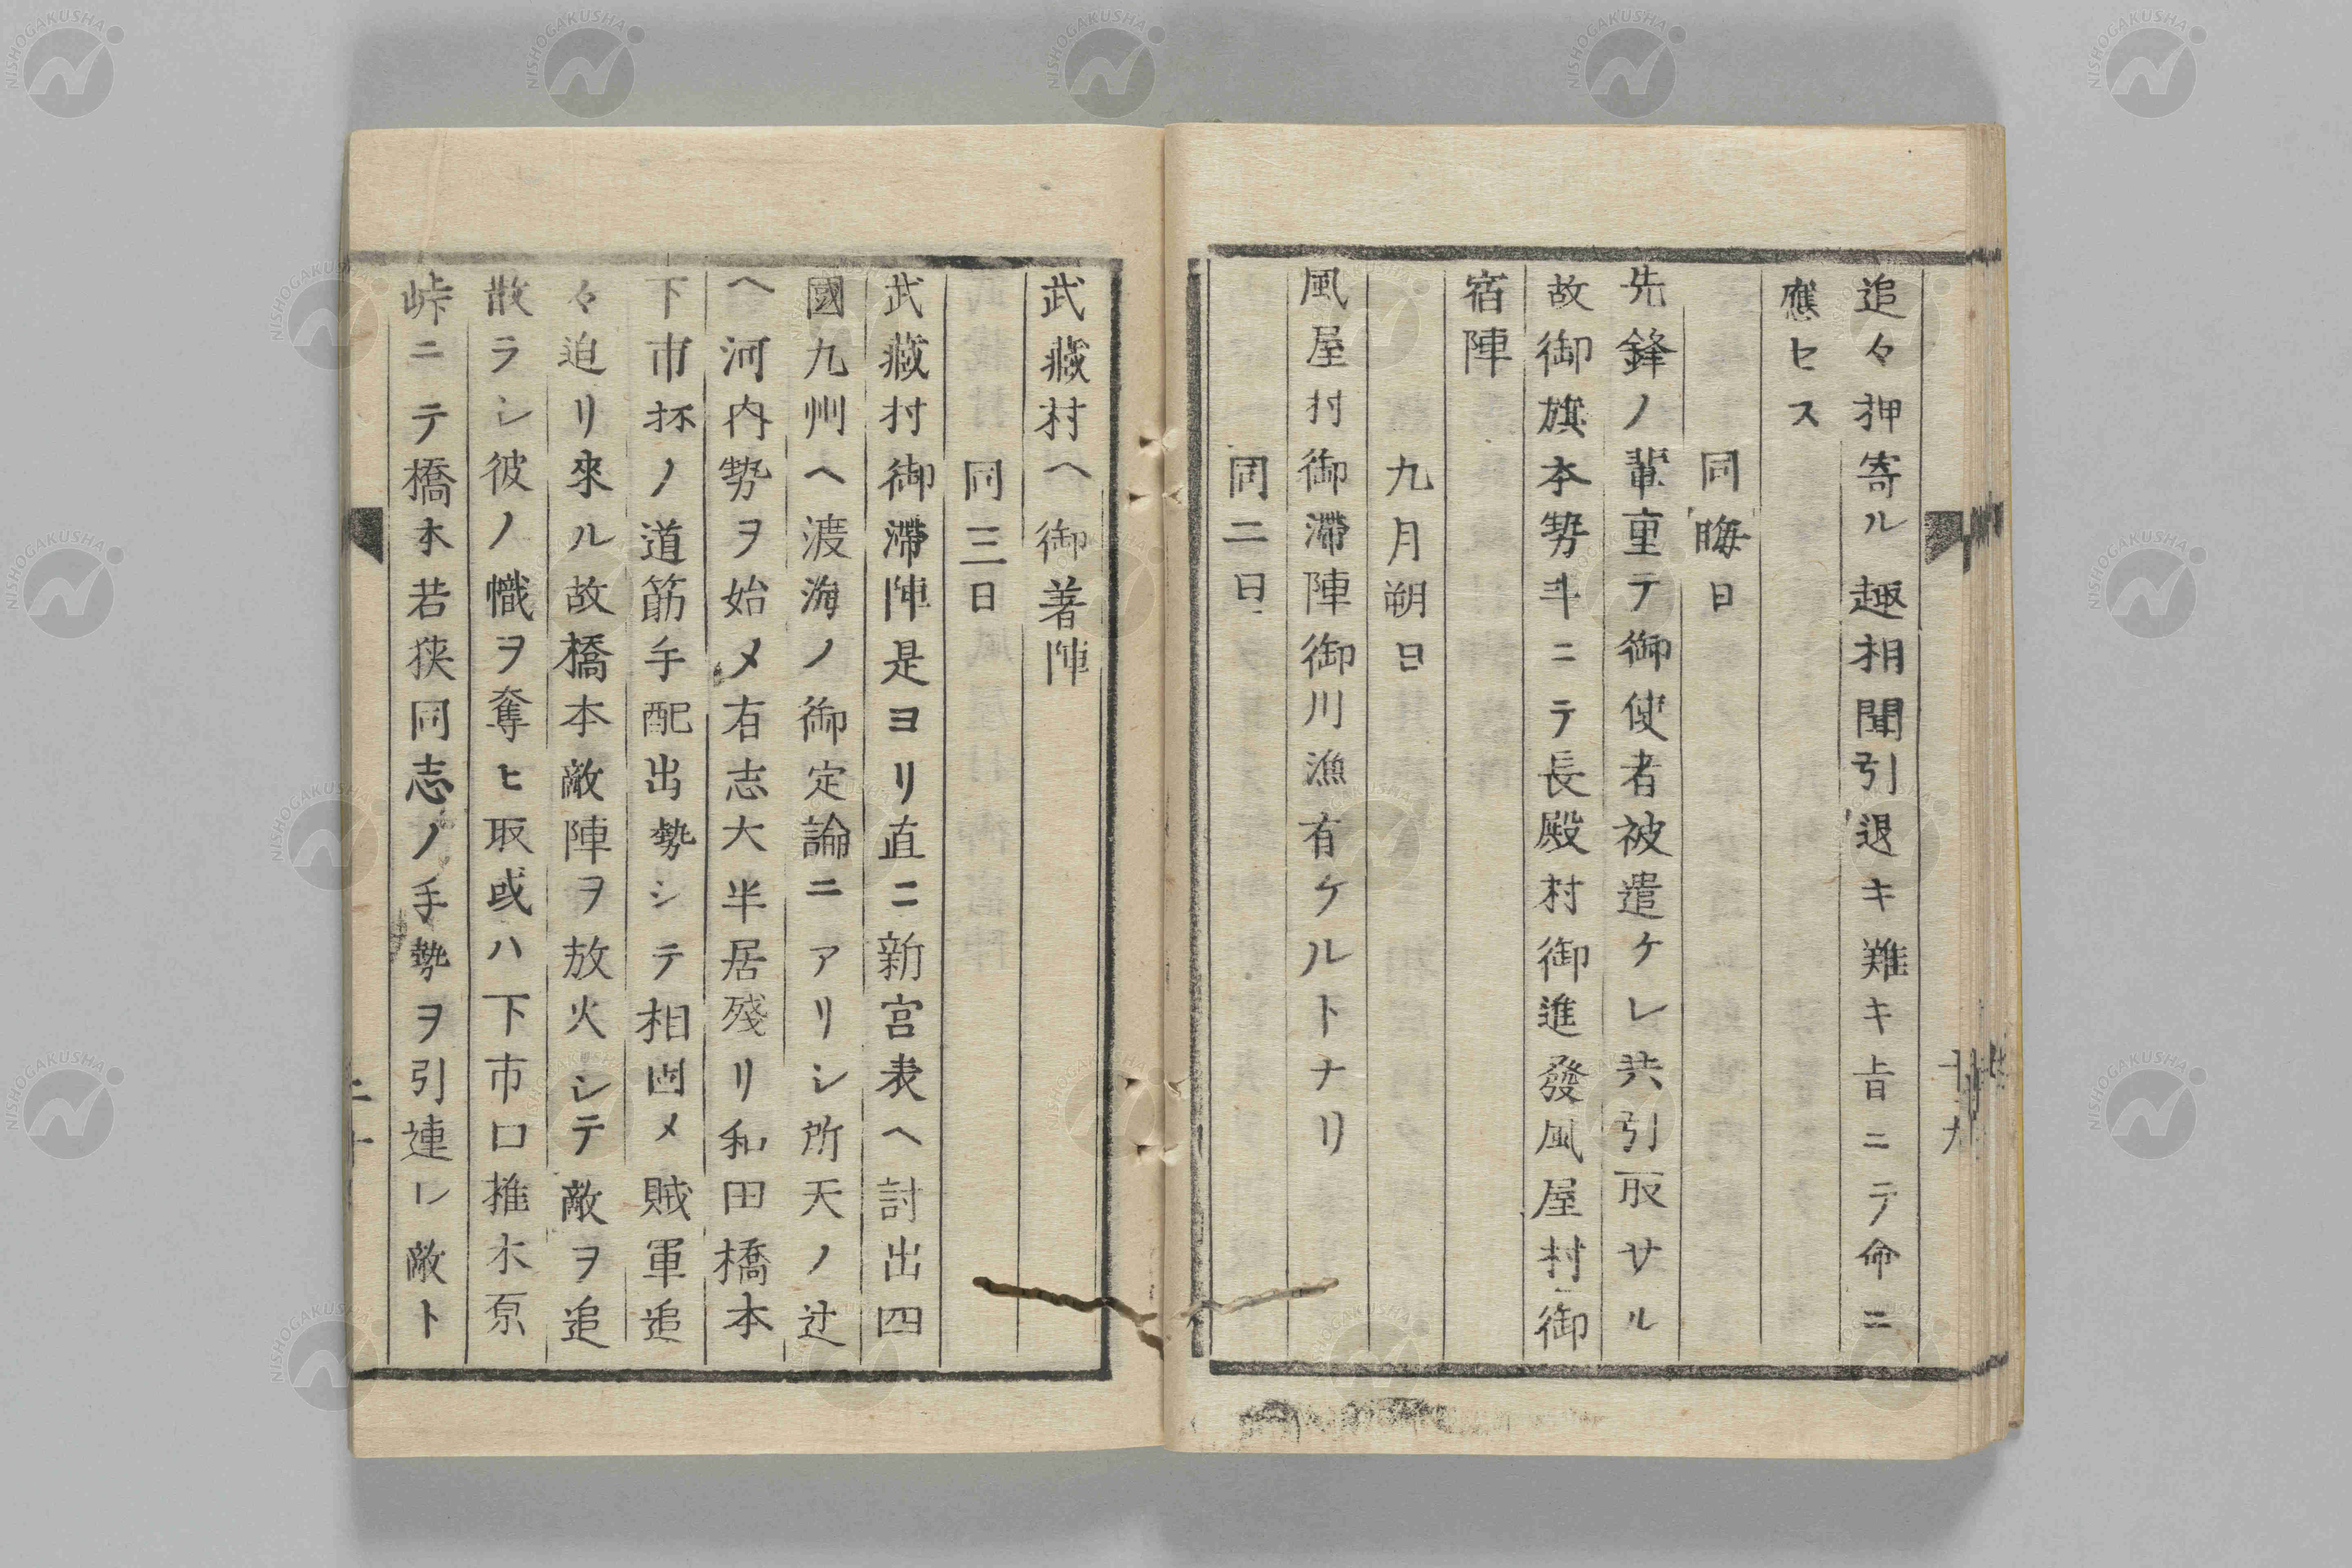 追々押寄ル趣相聞引退キ難キ旨ニテ命ニ
應セス
同晦日
先鋒ノ輩重テ御使者被遣ケレ共引取サル
故御旗本勢斗ニテ長殿村御進發風屋村御
宿陣
九月朔日
風屋村御滯陣御川漁有ケルトナリ
同二日
武藏村ヘ御著陣
同三日
武藏村御滯陣是ヨリ直ニ新宮表ヘ討出四
國九州ヘ渡海ノ御定論ニアリシ所天ノ辻
ヘ河内勢ヲ始メ有志大半居殘リ和田橋本
下市抔ノ道筋手配出勢シテ相固メ賊軍追
々迫リ來ル故橋本敵陣ヲ放火シテ敵ヲ追
散ラシ彼ノ幟ヲ奪ヒ取或ハ下市口推木原
峠ニテ橋本若狹同志ノ手勢ヲ引連レ敵ト
NISHOGAKUSHA